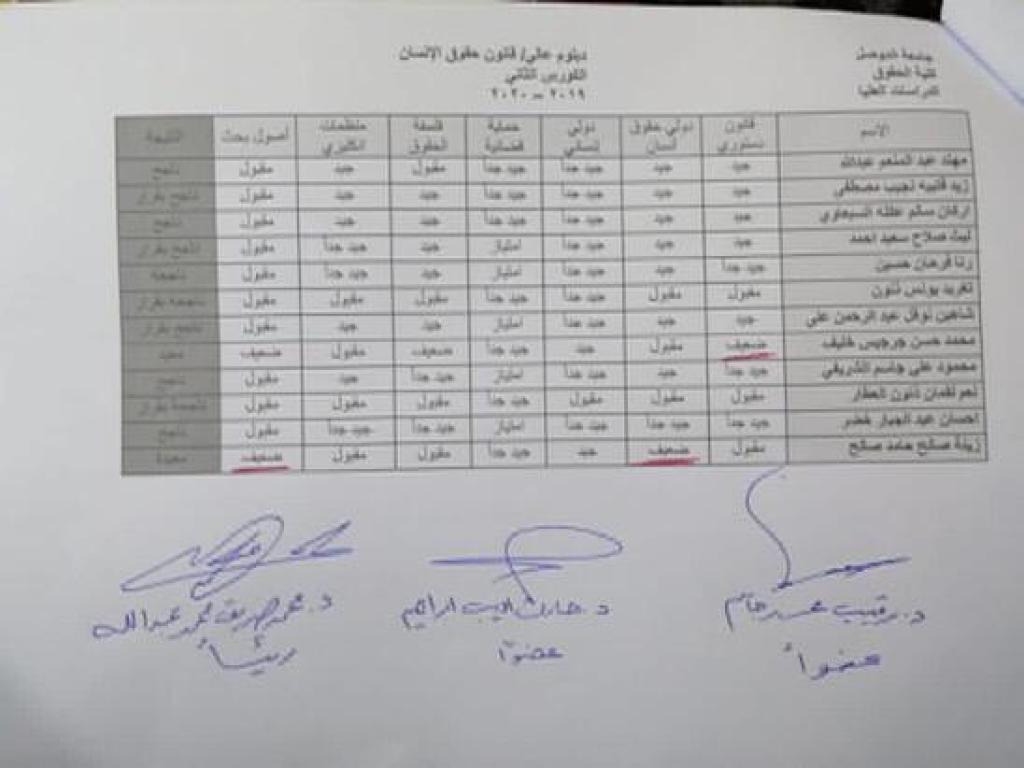 جامعة الموصل
كلية الحقوق
الدراسات العليا
دبلوم عالي/ قانون حقوق الإنسان
الكورس الثاني
٢٠١٩ – ٢٠٢٠
الاسم قانون دستوري دولي حقوق انسان دولي إنساني حماية قضائية فلسفة الحقوق منظمات انكليزي أصول بحث النتيجة
مهند عبد المنعم عبدالله جيد جيد جيد جداً جيد جداً مقبول جيد مقبول ناجح
زيد قتيبه نجيب مصطفى جيد جيد جيد جداً جيد جداً جيد جيد مقبول ناجح بقرار
اركان سالم السبعاوي جيد جيد جيد جداً جيد جداً جيد جيد مقبول ناجح
ليث صلاح سعيد احمد جيد جيد جيد جداً امتياز جيد جيد جداً مقبول ناجح بقرار
رنا فرحان حسين جيد جداً جيد جيد جداً امتياز جيد جيد جداً مقبول ناجحه
تغريد يونس ذنون مقبول مقبول جيد جداً جيد جداً مقبول مقبول مقبول ناجحه بقرار
شاهين نوفل عبد الرحمن علي جيد جيد جيد جداً امتياز جيد جيد مقبول ناجح بقرار
محمد حسن جرجيس خليف ضعيف مقبول جيد جيد جداً ضعيف مقبول ضعيف معيد
محمود علي جاسم الشريفي جيد جداً جيد جيد جداً امتياز جيد جداً جيد مقبول ناجح
لقمان ذنون العطار مقبول مقبول مقبول جيد جداً مقبول مقبول مقبول ناجحة بقرار
احسان عبد الجبار خضر جيد جداً جيد جداً جيد جداً امتياز جيد جداً جيد جداً مقبول ناجح
زينة صالح حامد صالح مقبول ضعيف جيد جيد جداً مقبول مقبول ضعيف معيدة
د. رقيب محمد جاسم
عضواً
د. حارث اديب ابراهيم
عضواً
د. محمد صديق محمد عبدالله
رئيساً